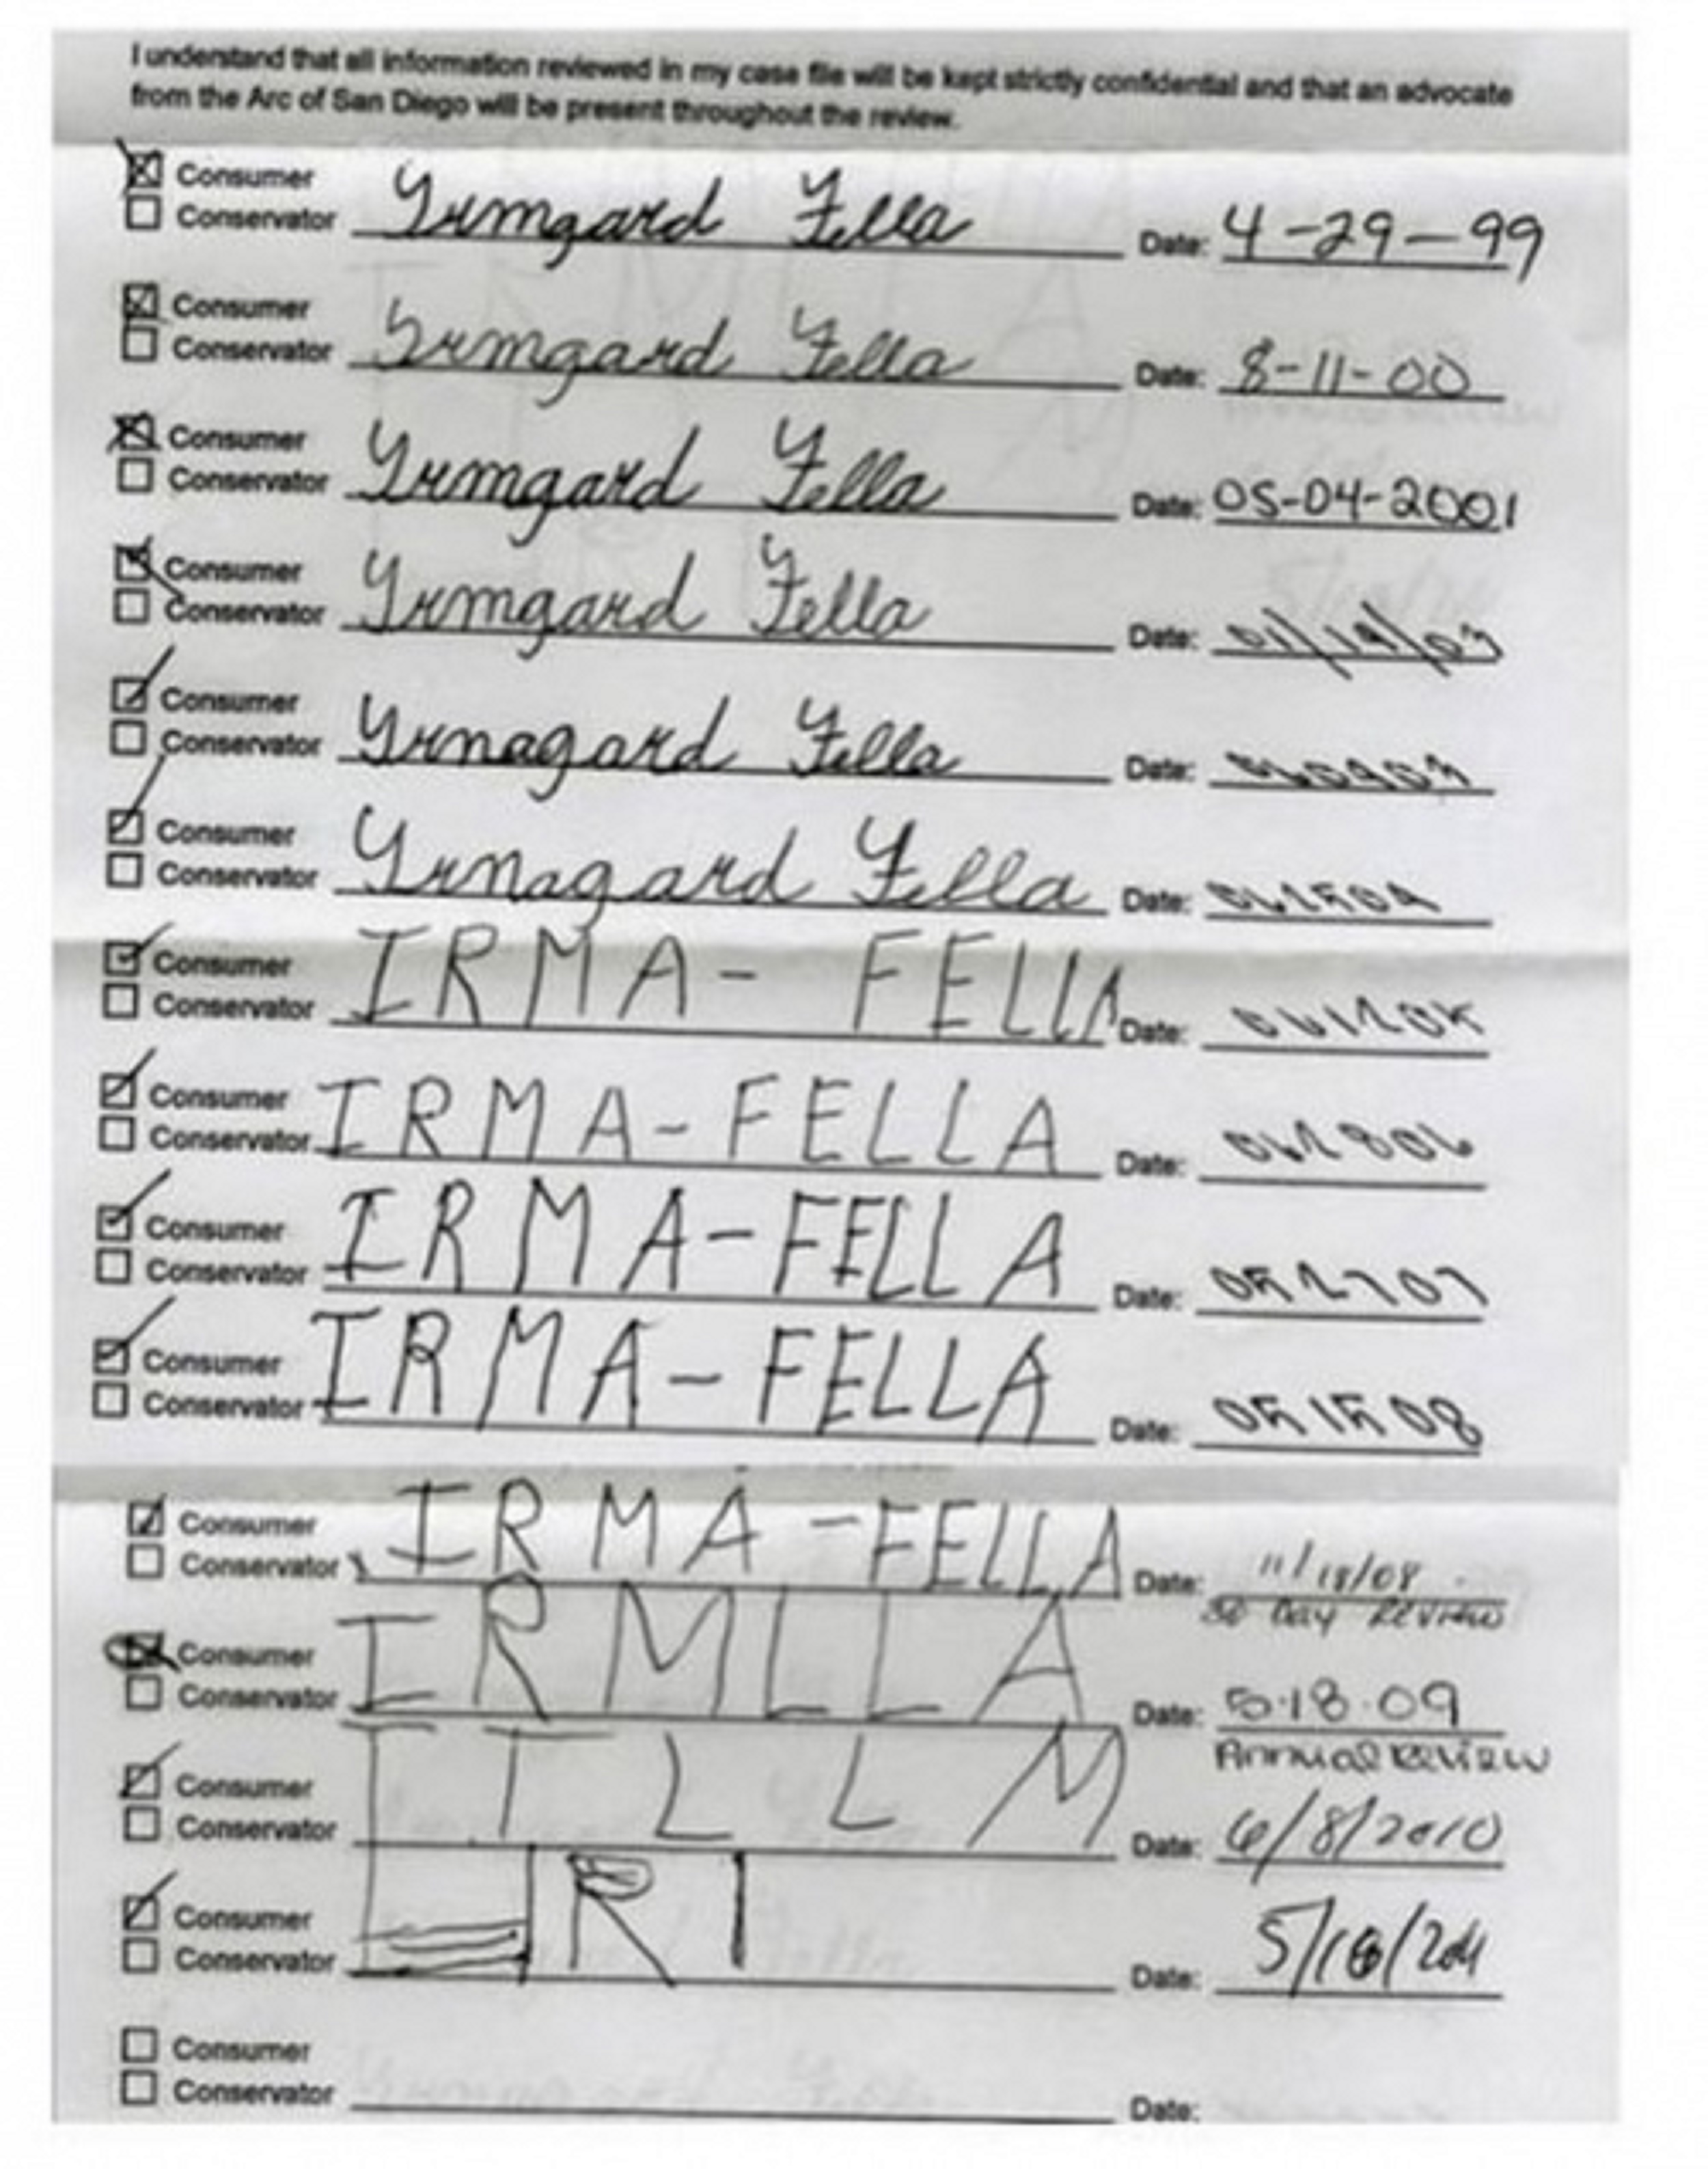 I understand that all information reviewed in my case file will be kept strictly confidential and that an advocate
from the Arc of San Diego will be present throughout the review.
Consumer
Conservator Yrmgard Fella Date: 4-29-99
Consumer
Conservator Yrmgard Fella Date: 8-11-00
Consumer
Conservator Yrmgard Fella Date: 05-04-2001
Consumer
Conservator Yrmgard Fella Date: 01/19/03
Consumer
Conservator Yrnagard Fella Date: 060903
Consumer
Conservator Yrnagard Fella Date: 061504
Consumer
Conservator IRMA- FELLA Date:
Consumer
Conservator IRMA-FELLA Date: 062806
Consumer
Conservator IRMA-FELLA Date: 052707
Consumer
Conservator IRMA-FELLA Date: 051508
Consumer
Conservator IRMA-FELLA Date: 11/18/08
30 Day Review
Consumer
Conservator IRMLLA Date: 5·18·09
Annual Review
Consumer
Conservator I I L L M Date: 6/8/2010
Consumer
Conservator R I Date: 5/18/2011
Consumer
Conservator Date: